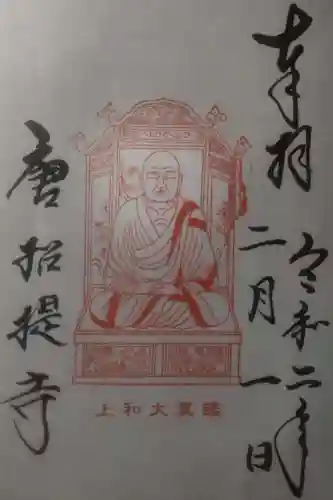 奉拝
令和二年
二月一日
上和大眞鑑
唐招提寺